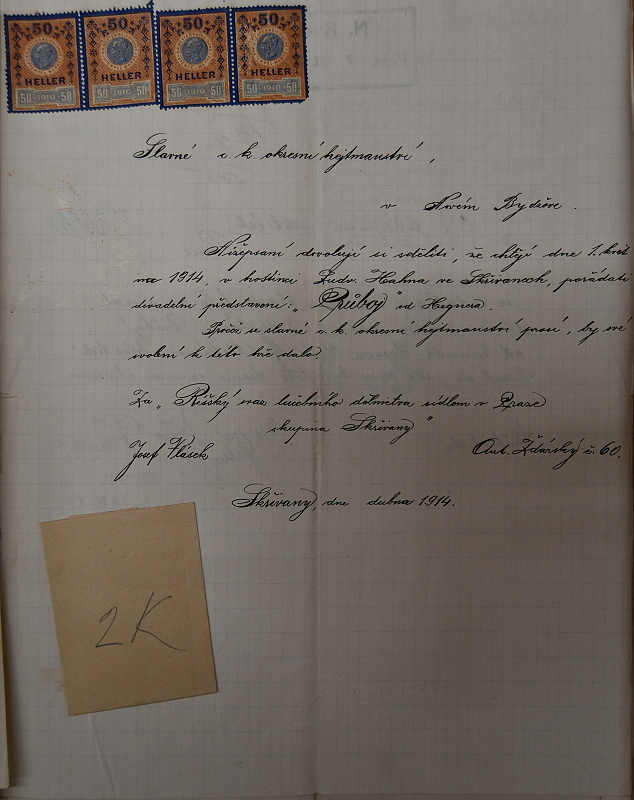 50 50 50 50
HELLER HELLER HELLER HELLER
50 1910 50 50 1910 50 50 1910 50 50 1910 50
Slavné c. k. okresní hejtmanství,
v Novém Bydžově.
Nížepsaní dovolují si sděliti, že chtějí dne 1. květ
na 1914, v hostinci Ludv. Hahna ve Skřivanech, pořádati
divadelní představení: „Průboj" od Hegnera.
Pročež se slavné c. k. okresní hejtmanství prosí, by své
svolení k této hře dalo.
Za „Říšský svaz lučebního dělnictva sídlem v Praze
skupina Skřivany"
Josef Vlásek Ant. Žďárský č. 60.
Skřivany, dne dubna 1914.
2K